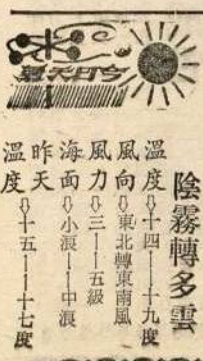 今日天氣
陰霧轉多雲
溫度⇨十四——十九度
風向⇨東北轉東南風
風力⇨三——五級
海面⇨小浪——中浪
昨天
溫度⇨十五——十七度